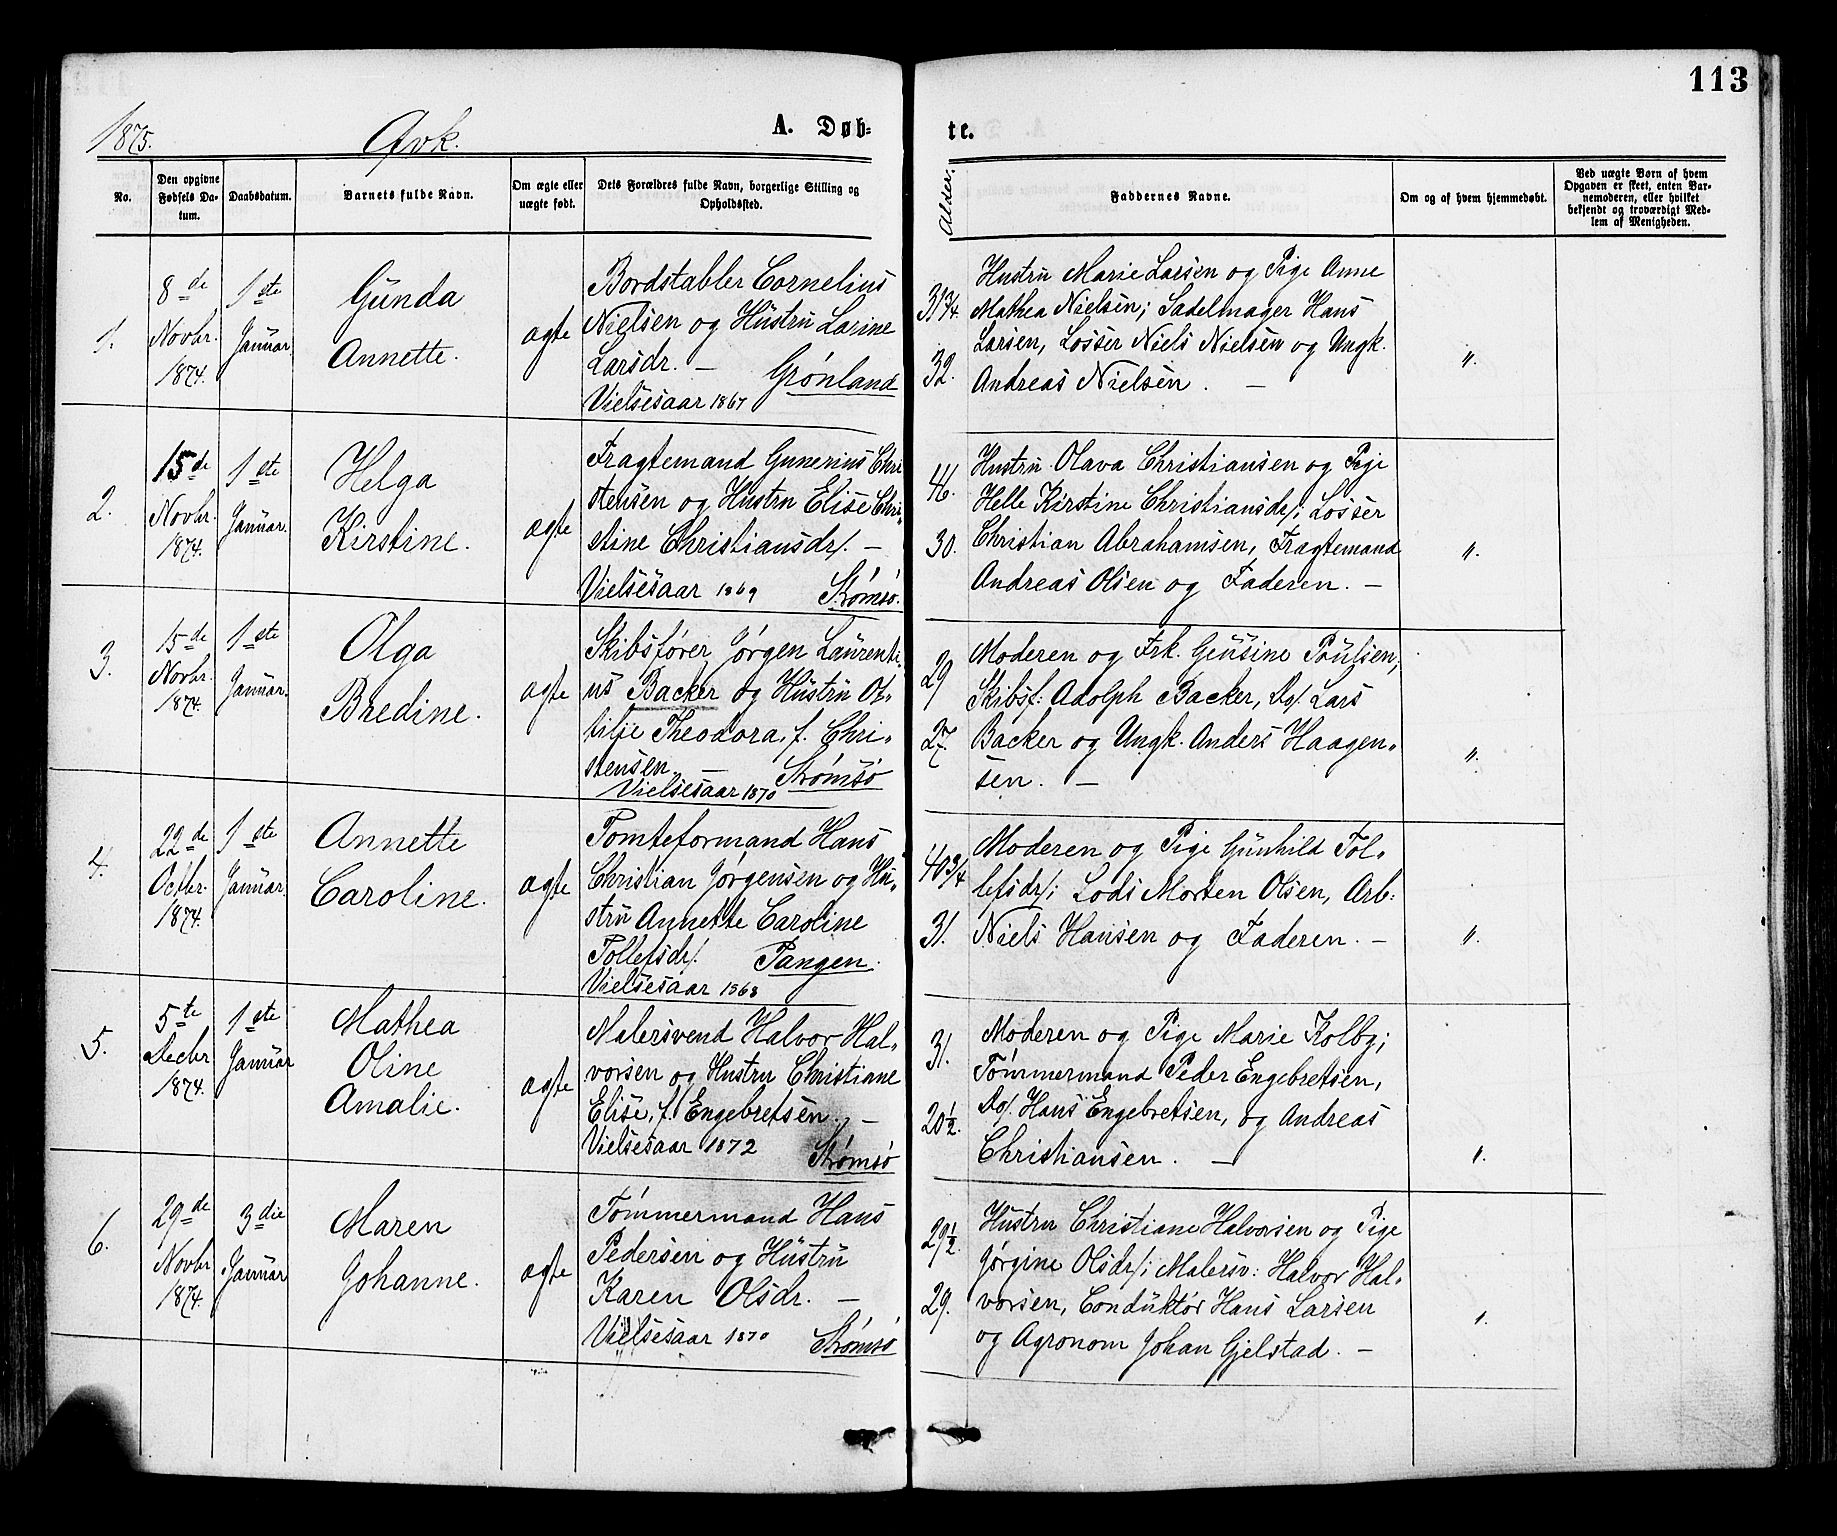 113
1875.
Qvk.
A. Døb-
te.
No.
Den opgivne
Fødsels Da-
tum.
Daabsdatum.
Barnets fulde Navn.
Om ægte eller
uægte født.
Dets Forældres fulde Navn, borgerlige Stilling og
Opholdssted.
Alder.
Faddernes Navne.
Om og af hvem hjemmedøbt.
Ved uægte Børn af hvem
Opgaven er skeet, enten Bar-
nemoderen, eller hvilket
bekjendt og troværdigt Med-
lem af Menigheden.
1.
8de
Novbr.
1874.
1ste
Januar.
Gunda
Annette.
ægte
Bordstabler Cornelius
Nielsen og Hustru Larine
Larsdr. —
Grønland
Vielsesaar 1867
31 3/4.
32.
Hustru Marie Larsen og Pige Anne
Mathea Nielsen; Sadelmager Hans
Larsen, Losser Niels Nielsen og Ungk.
Andreas Nielsen. —
".
2.
15de
Novbr.
1874.
1ste
Januar.
Helga
Kirstine.
ægte
Fragtemand Gunerius Chri-
stensen og Hustru Elise Chri-
stine Christiansdr/. —
Vielsesaar 1869
Strømsø.
46.
30.
Hustru Olava Christiansen og Pige
Helle Kirstine Christiansdr/; Losser
Christian Abrahamsen, Fragtemand
Andreas Olsen og Faderen. —
".
3.
15de
Novbr.
1874.
1ste
Januar.
Olga
Bredine.
ægte
Skibsfører Jørgen Laurenti-
us Backer og Hustru Ot-
tilie Theodora, f. Chri-
stensen. —
Strømsø
Vielsesaar 1870
29
27.
Moderen og Frk. Geusine Poulsen;
Skibsf: Adolph Backer, Do/. Lars
Backer og Ungk. Anders Haagen-
sen. —
".
4.
22de
Octbr.
1874.
1ste
Januar.
Annette
Caroline.
ægte
Tomteformand Hans
Christian Jørgensen og Hu-
stru Annette Caroline
Tollefsdr/.
Tangen.
Vielsesaar 1868
40 3/4
31.
Moderen og Pige Gunhild Tol-
lefsdr/; Lods Morten Olsen, Arb:
Niels Hansen og Faderen. —
".
5.
5te
Decbr
1874.
1ste
Januar
Mathea
Oline
Amalie.
ægte
Malersvend Halvor Hal-
vorsen og Hustru Christiane
Elise, f. Engebretsen. —
Vielsesaar 1872
Strømsø
31.
20 1/2.
Moderen og Pige Marie Kolby;
Tømmermand Peder Engebretsen,
Do/. Hans Engebretsen, og Andreas
Christiansen. —
".
6.
29de
Novbr
1874.
3die
Januar
Maren
Johanne.
ægte
Tømmermand Hans
Pedersen og Hustru
Karen Olsdr. —
Vielsesaar 1870
Strømsø
29 1/2.
29.
Hustru Christiane Halvorsen og Pige
Jørgine Olsdr/; Malersv: Halvor Hal-
vorsen, Conduktør Hans Larsen
og Agronom Johan Gjelstad. —
".